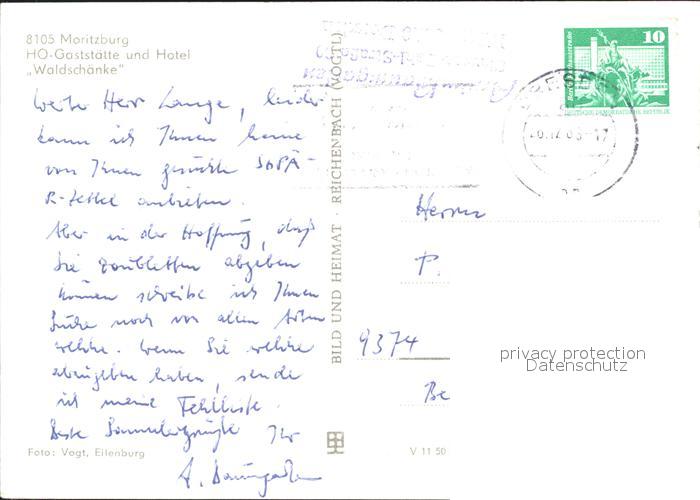 8105 Moritzburg
HO-Gaststätte und Hotel
„Waldschänke"
Werter Herr Lange, leider
kann ich Ihnen keine
von Ihnen gesuchte
R-Zettel anbieten.
Aber in der Hoffnung, daß
Sie Doubletten abgeben
können schreibe ich Ihnen
Suche noch von allen
welche. Wenn Sie welche
abzugeben haben, sende
ich meine Fehlliste.
Beste Sammlergrüße Ihr
A. Baumgarten
Foto: Vogt, Eilenburg
BILD UND HEIMAT · REICHENBACH (VOGTL)
V 11 50
10
DEUTSCHE DEMOKRATISCHE REPUBLIK
Herrn
P.
9374
Be
privacy protection
Datenschutz